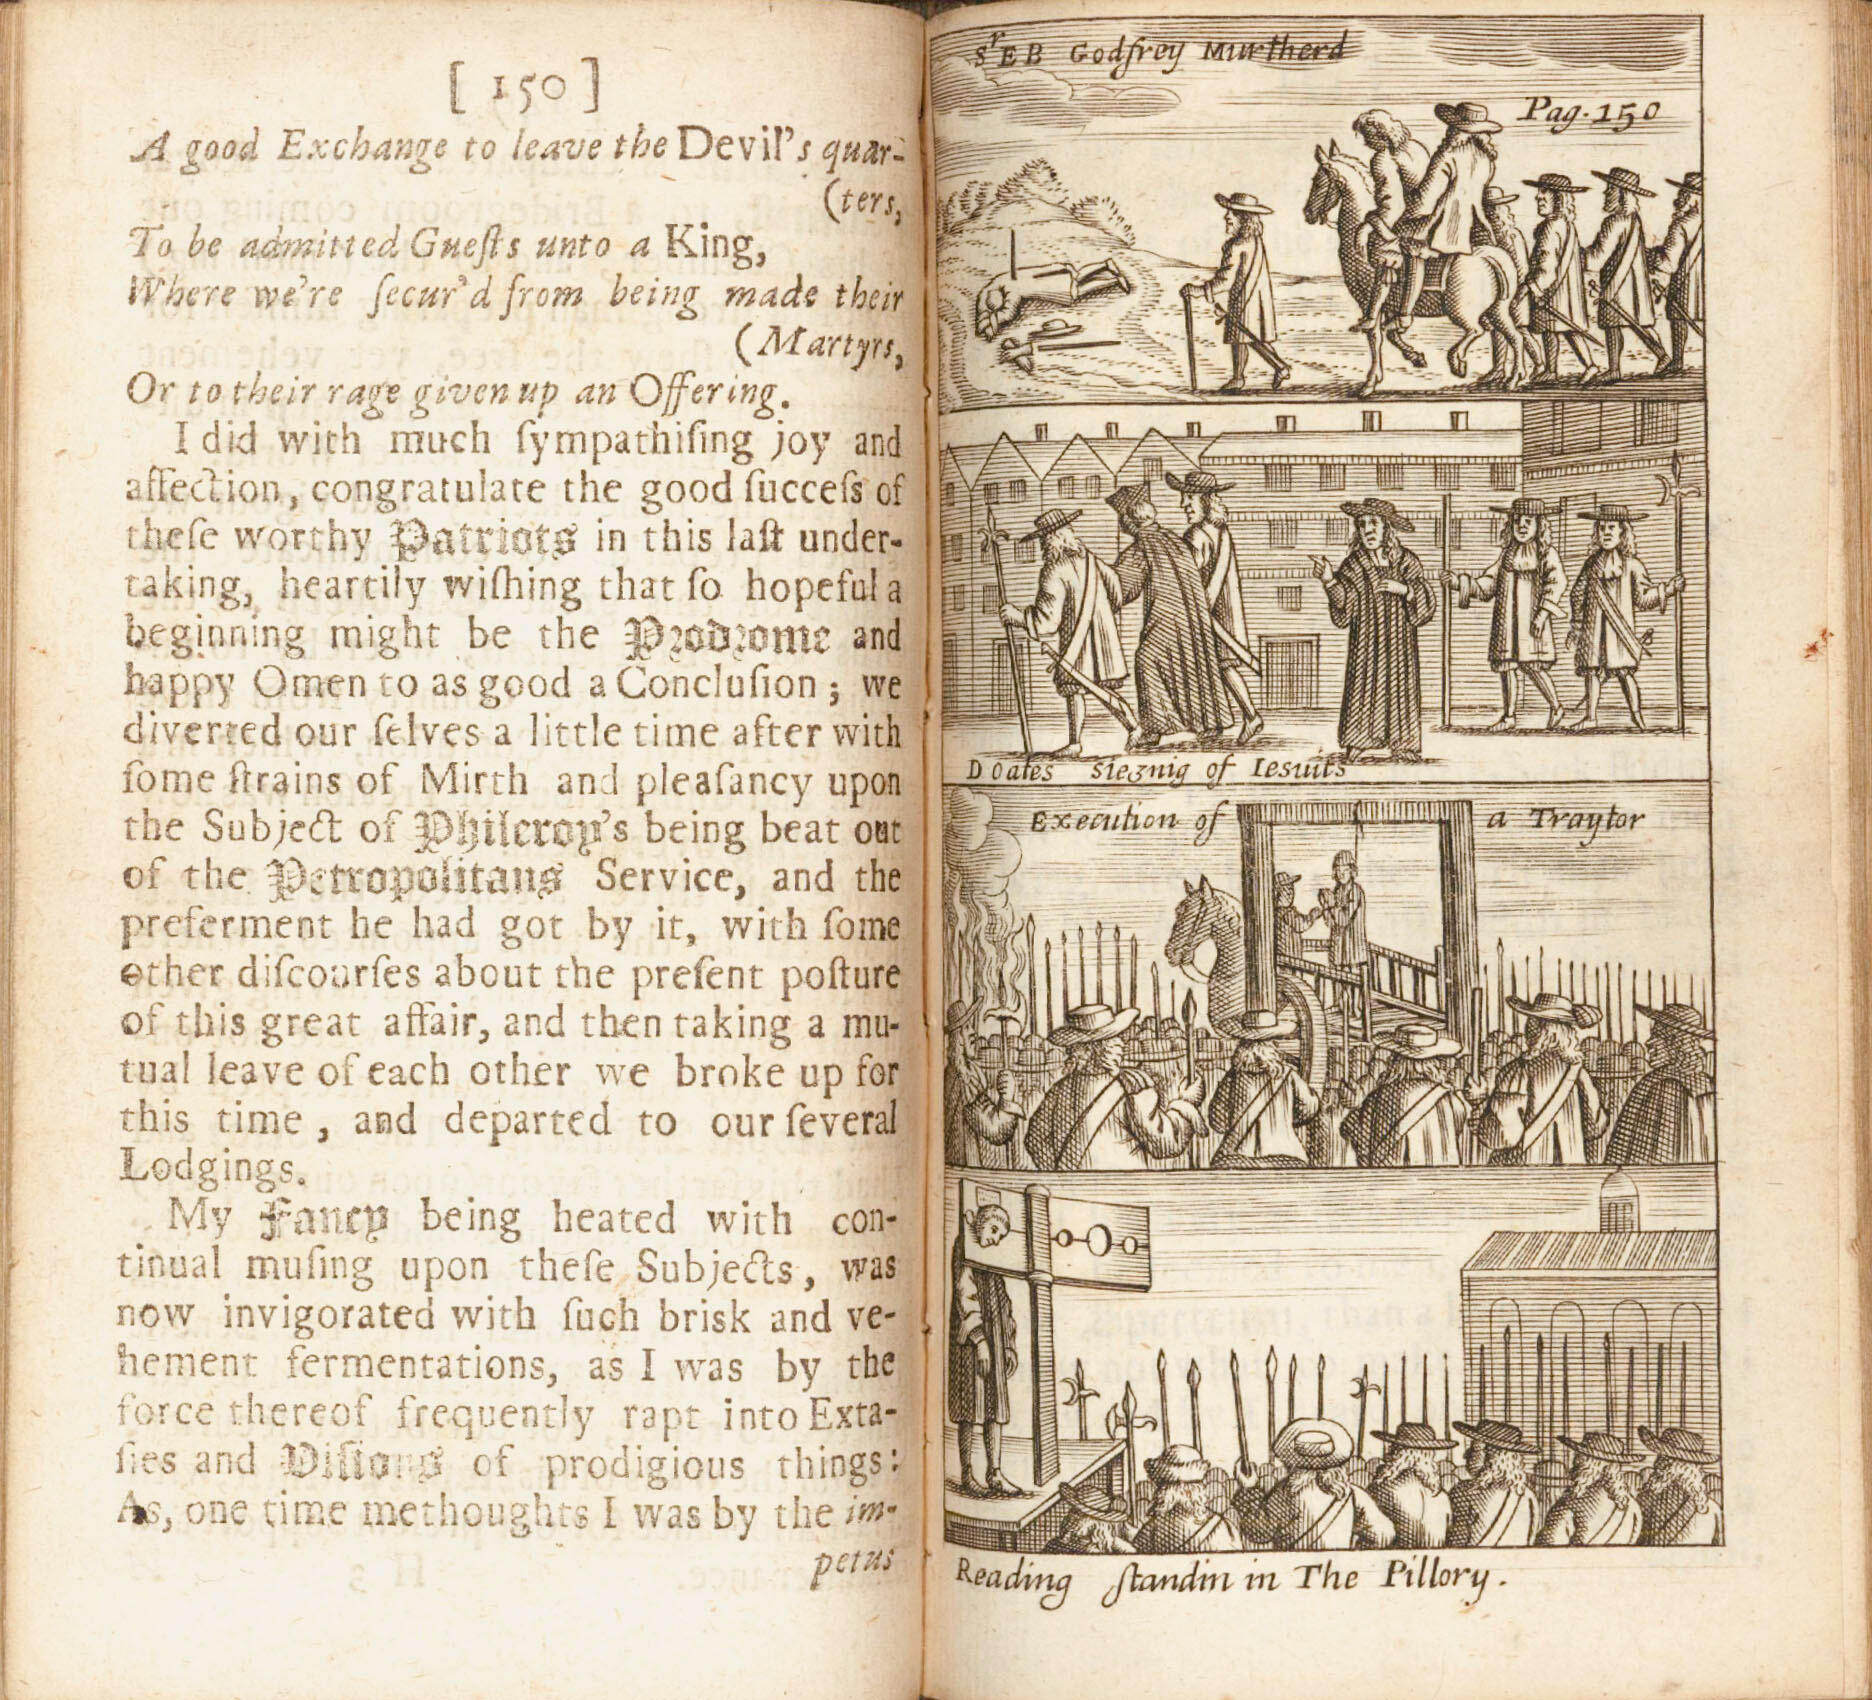 [ 150 ]
A good Exchange to leave the Devil's quar-
(ters,
To be admitted Gueſts unto a King,
Where we're ſecur'd from being made their
(Martyrs,
Or to their rage given up an Offering.
I did with much ſympathiſing joy and
affection, congratulate the good ſucceſs of
theſe worthy Patriots in this laſt under-
taking, heartily wiſhing that ſo hopeful a
beginning might be the Prodrome and
happy Omen to as good a Concluſion ; we
diverted our ſelves a little time after with
ſome ſtrains of Mirth and pleaſancy upon
the Subject of Phileroy's being beat out
of the Petropolitans Service, and the
preferment he had got by it, with ſome
other diſcourſes about the preſent poſture
of this great affair, and then taking a mu-
tual leave of each other we broke up for
this time , and departed to our ſeveral
Lodgings.
My Fancy being heated with con-
tinual muſing upon theſe Subjects, was
now invigorated with ſuch brisk and ve-
hement fermentations, as I was by the
force thereof frequently rapt into Exta-
ſies and Viſions of prodigious things:
As, one time methoughts I was by the im-
petus
Sr E B Godfrey Murtherd
Pag. 150
D Oates sieznig of Iesuits
Execution of a Traytor
Reading ſtandin in The Pillory.